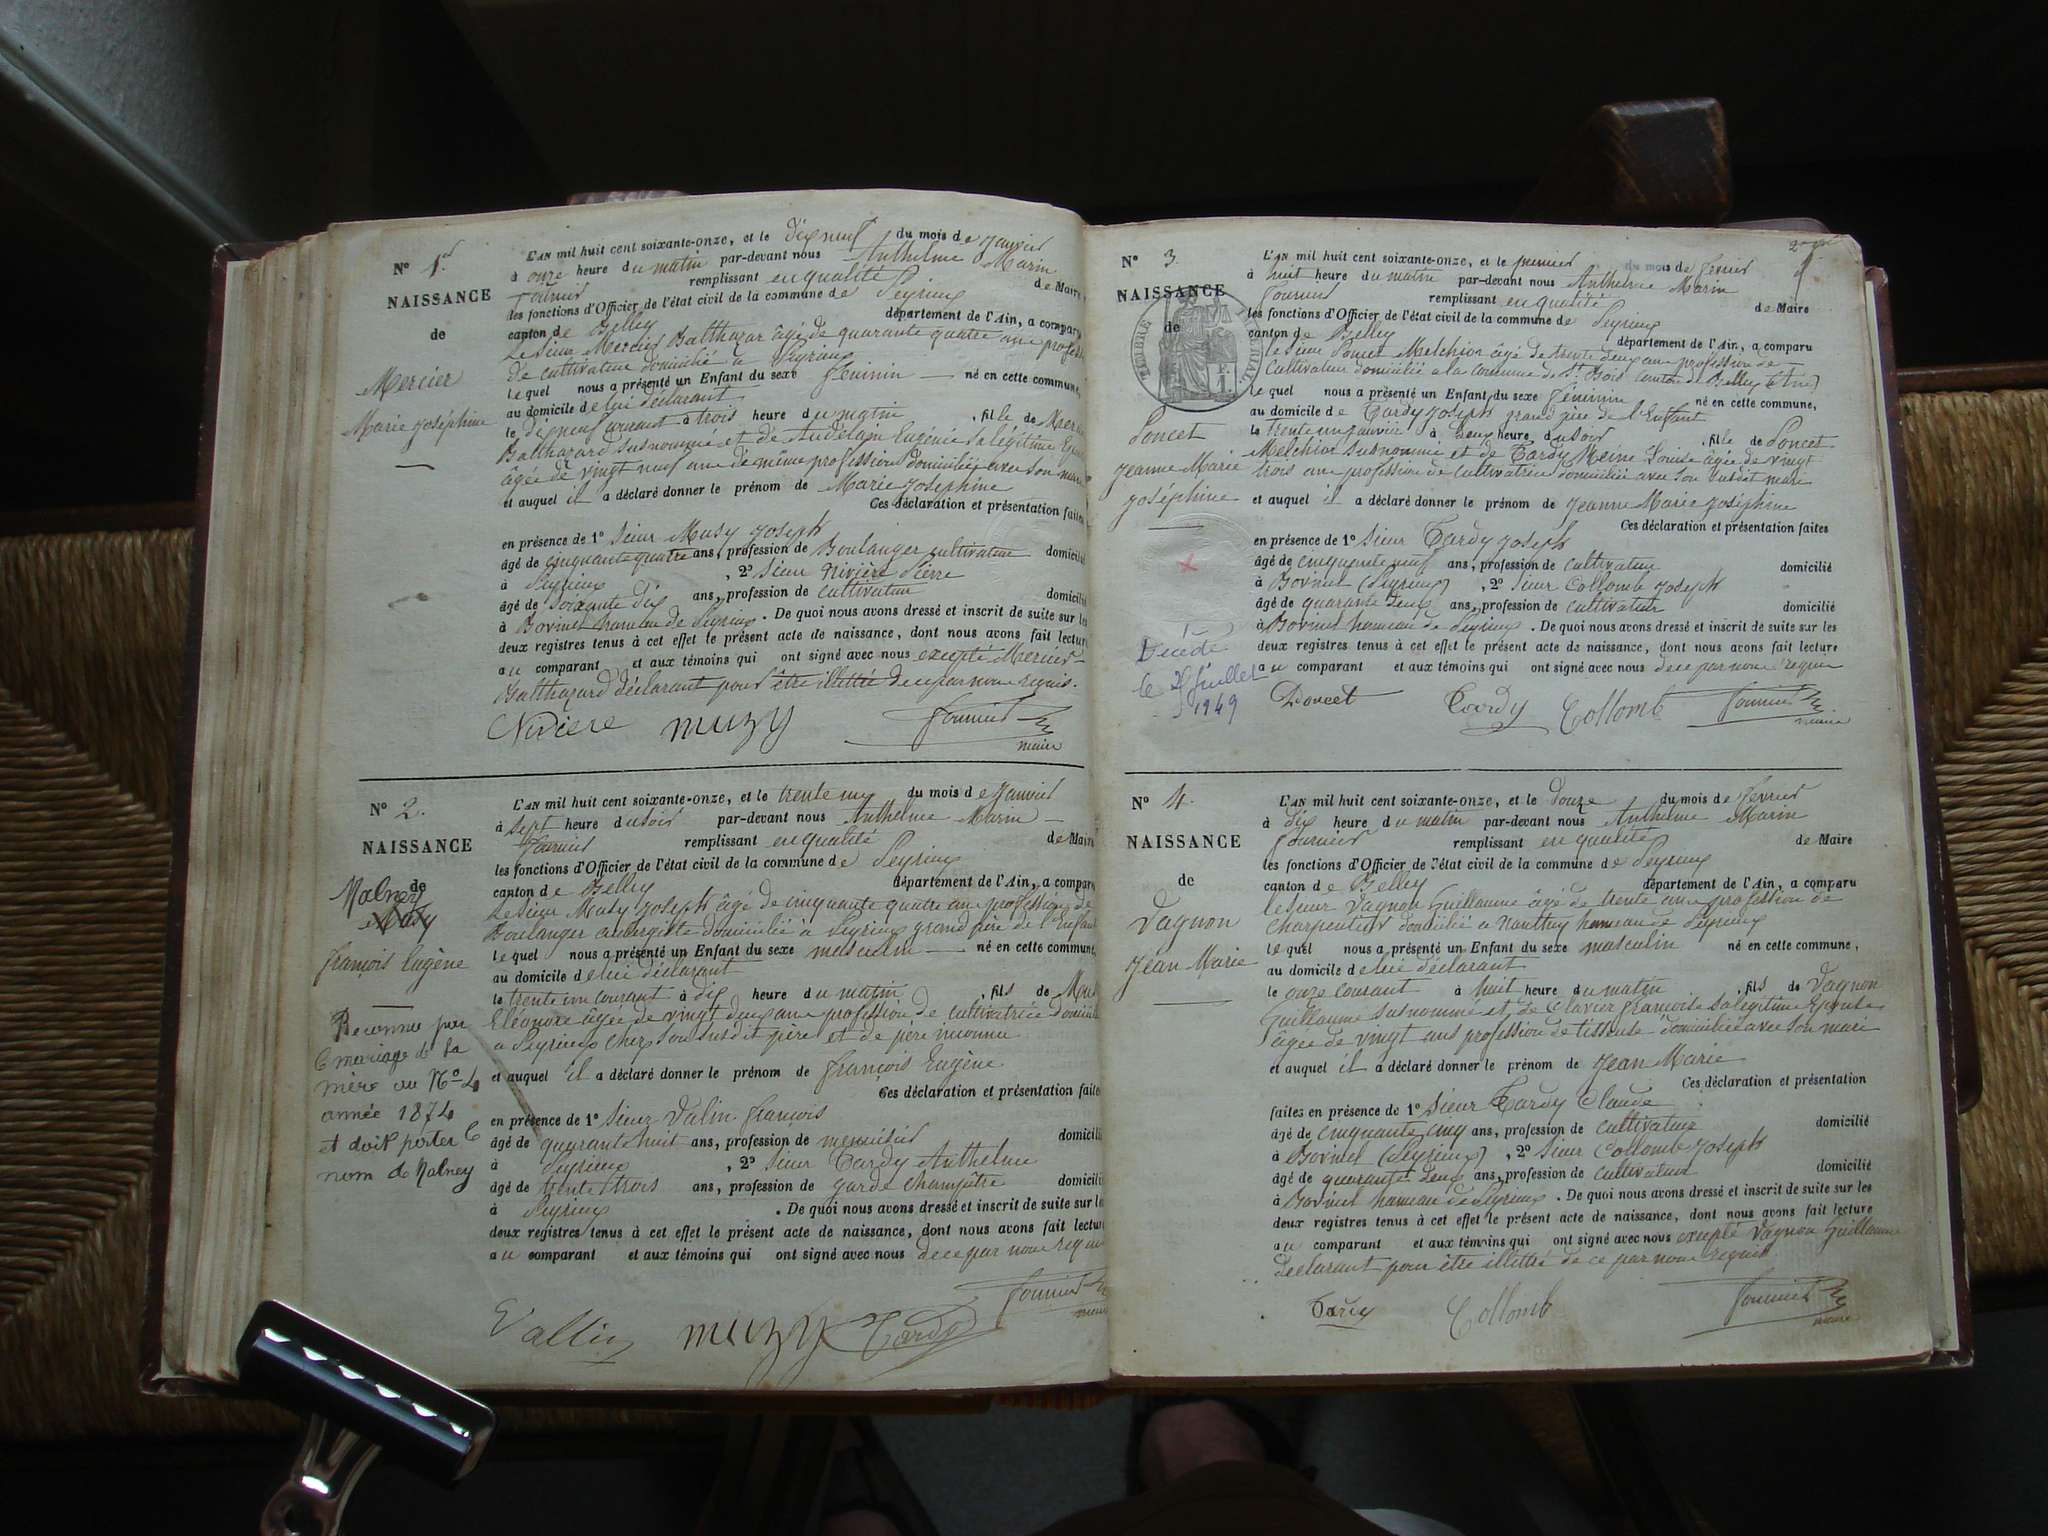 N° 1er
NAISSANCE
de
Mercier
Marie Joséphine
L'AN mil huit cent soixante-onze, et le dix neuf du mois de Janvier
à onze heure du matin par-devant nous Anthelme Marin
Fournier remplissant en qualité de Maire
les fonctions d'Officier de l'état civil de la commune de Peyrieux
canton de Belley département de l'Ain, a comparu
Le sieur Mercier Balthazar âgé de quarante quatre ans profess
de cultivateur domicilié à Peyrieux
lequel nous a présenté un Enfant du sexe féminin né en cette commune,
au domicile de lui déclarant
le dix neuf courant à trois heure du matin , fille de Merc
Balthazard susnommé et de Eugénie sa légitime
âgée de vingt neuf ans de même profession domiciliée avec son mari
et auquel il a déclaré donner le prénom de Marie Joséphine
Ces déclaration et présentation faites
en présence de 1° sieur Musy Joseph
âgé de cinquante quatre ans, profession de Boulanger cultivateur domicilié
à Peyrieux , 2° sieur Nivière Pierre
âgé de soixante dix ans, profession de cultivateur domicilié
à Bovinel hameau de Peyrieux . De quoi nous avons dressé et inscrit de suite sur les
deux registres tenus à cet effet le présent acte de naissance, dont nous avons fait lecture
au comparant et aux témoins qui ont signé avec nous excepté Mercier
Balthazard déclarant pour être illettré de ce par nous requis.
Niviere muzy fournier
maire
N° 2.
NAISSANCE
de
Malney
Musy
françois Eugène
Reconnu par
le mariage de sa
mère au N° 4
année 1874
et doit porter le
nom de Malney
L'AN mil huit cent soixante-onze, et le trente un du mois de Janvier
à sept heure du soir par-devant nous Anthelme Marin
Fournier remplissant en qualité de Maire
les fonctions d'Officier de l'état civil de la commune de Peyrieux
canton de Belley département de l'Ain, a comparu
Le sieur Musy Joseph âgé de cinquante quatre ans profession de
Boulanger aubergiste domicilié à Peyrieux grand père de l'Enfant
lequel nous a présenté un Enfant du sexe masculin né en cette commune,
au domicile de lui déclarant
le trente un courant à dix heure du matin , fils de Mus
Eléonore âgée de vingt deux ans profession de cultivatrice domici
à Peyrieux chez son susdit père et de père inconnu
et auquel il a déclaré donner le prénom de françois Eugène
Ces déclaration et présentation faites
en présence de 1° sieur Valin françois
âgé de quarante huit ans, profession de menuisier domicilié
à Peyrieux , 2° sieur Tardy Anthelme
âgé de trente trois ans, profession de garde champêtre domicilié
à Peyrieux . De quoi nous avons dressé et inscrit de suite sur les
deux registres tenus à cet effet le présent acte de naissance, dont nous avons fait lecture
au comparant et aux témoins qui ont signé avec nous de ce par nous requis
Vallin muzy Tardy fournier
maire
N° 3.
NAISSANCE
de
TIMBRE IMPÉRIAL
1 F.
Poncet
Jeanne Marie
Joséphine
Décédé
le 25 Juillet
1949
L'AN mil huit cent soixante-onze, et le premier du mois de février
à huit heure du matin par-devant nous Anthelme Marin
Fournier remplissant en qualité de Maire
les fonctions d'Officier de l'état civil de la commune de Peyrieux
canton de Belley département de l'Ain, a comparu
le sieur Poncet Melchior âgé de trente deux ans profession de
Cultivateur domicilié à la commune de St Bois canton de Belley (Ain)
lequel nous a présenté un Enfant du sexe féminin né en cette commune,
au domicile de Tardy Joseph grand père de l'Enfant
le trente un janvier à deux heure du soir , fille de Poncet
Melchior susnommé et de Tardy Louise âgée de vingt
trois ans profession de cultivatrice domiciliée avec son susdit mari
et auquel il a déclaré donner le prénom de Jeanne Marie Joséphine
Ces déclaration et présentation faites
en présence de 1° sieur Tardy Joseph
âgé de cinquante neuf ans, profession de cultivateur domicilié
à Bovinel (Peyrieux) , 2° sieur Collomb Joseph
âgé de quarante deux ans, profession de cultivateur domicilié
à Bovinel hameau de Peyrieux . De quoi nous avons dressé et inscrit de suite sur les
deux registres tenus à cet effet le présent acte de naissance, dont nous avons fait lecture
au comparant et aux témoins qui ont signé avec nous de ce par nous requis
Poncet Tardy Collomb fournier
maire
N° 4.
NAISSANCE
de
Vagnon
Jean Marie
L'AN mil huit cent soixante-onze, et le douze du mois de février
à dix heure du matin par-devant nous Anthelme Marin
Fournier remplissant en qualité de Maire
les fonctions d'Officier de l'état civil de la commune de Peyrieux
canton de Belley département de l'Ain, a comparu
le sieur Vagnon Guillaume âgé de trente ans profession de
charpentier domicilié à Nanthuy hameau de Peyrieux
lequel nous a présenté un Enfant du sexe masculin né en cette commune,
au domicile de lui déclarant
le onze courant à huit heure du matin , fils de Vagnon
Guillaume susnommé et de Clavier françoise sa légitime Epouse
âgée de vingt ans profession de tisseuse domiciliée avec son mari
et auquel il a déclaré donner le prénom de Jean Marie
Ces déclaration et présentation
faites en présence de 1° sieur Tardy Claude
âgé de cinquante cinq ans, profession de cultivateur domicilié
à Bovinel (Peyrieux) , 2° sieur Collomb Joseph
âgé de quarante deux ans, profession de cultivateur domicilié
à Bovinel hameau de Peyrieux . De quoi nous avons dressé et inscrit de suite sur les
deux registres tenus à cet effet le présent acte de naissance, dont nous avons fait lecture
au comparant et aux témoins qui ont signé avec nous excepté Vagnon Guillaume
déclarant pour être illettré de ce par nous requis
Tardy Collomb fournier
maire